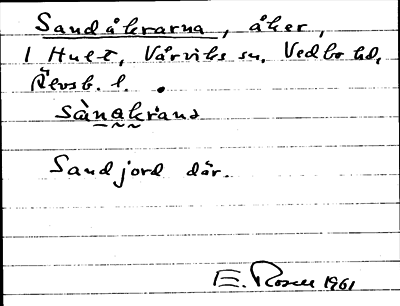 Sandåkrarna, åker,
1 Hult, Vårviks sn. Vedbo hd,
Älvsb. l.
sànakrana
Sandjord där.
E. Rosell 1961